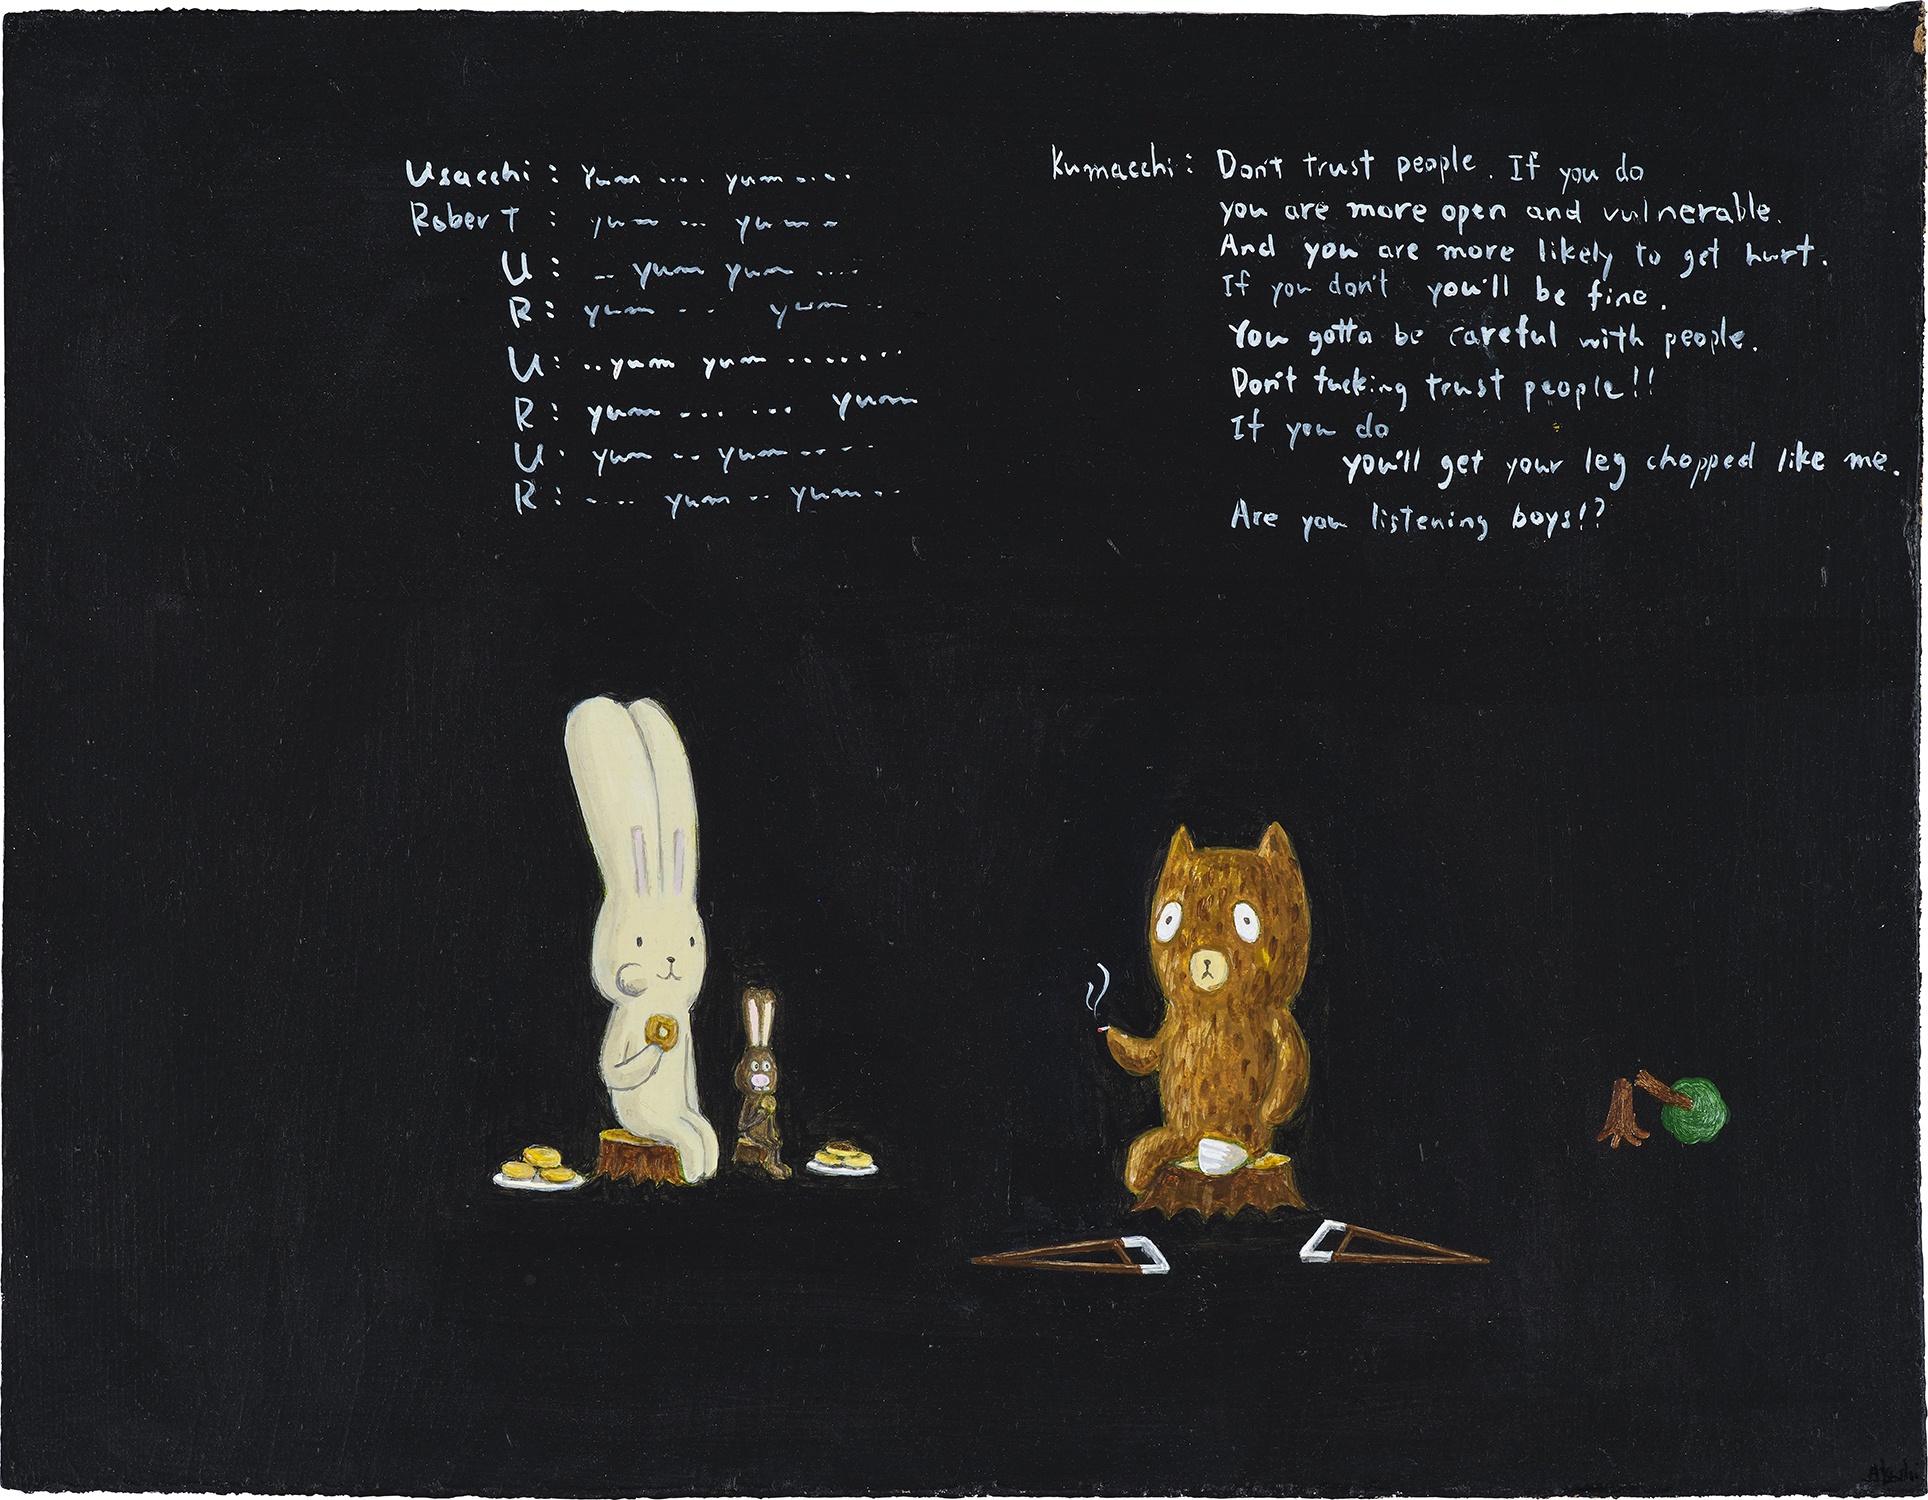 Usacchi : yum .... yum ....
Robert : yum ... yum ..
U : .. yum yum ....
R : yum .. yum ..
U : ..yum yum .......
R : yum ... ... yum
U . yum .. yum .. - -
R : .... yum .. yum ..
Kumacchi : Don't trust people. If you do
you are more open and vulnerable.
And you are more likely to get hurt.
If you don't you'll be fine.
You gotta be careful with people.
Don't fucking trust people!!
If you do
you'll get your leg chopped like me.
Are you listening boys!?